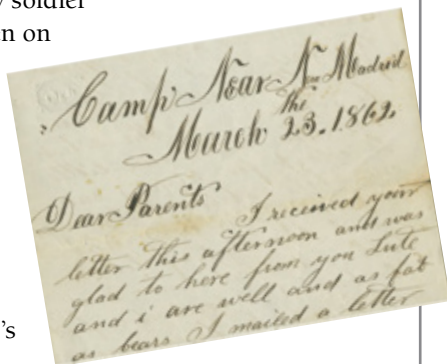 soldier
n on
Camp Near New Madrid
March the 23. 1862
Dear Parents
I received your
letter this afternoon and was
glad to here from you Lute
and i are well and as fat
as bears I mailed a letter
's